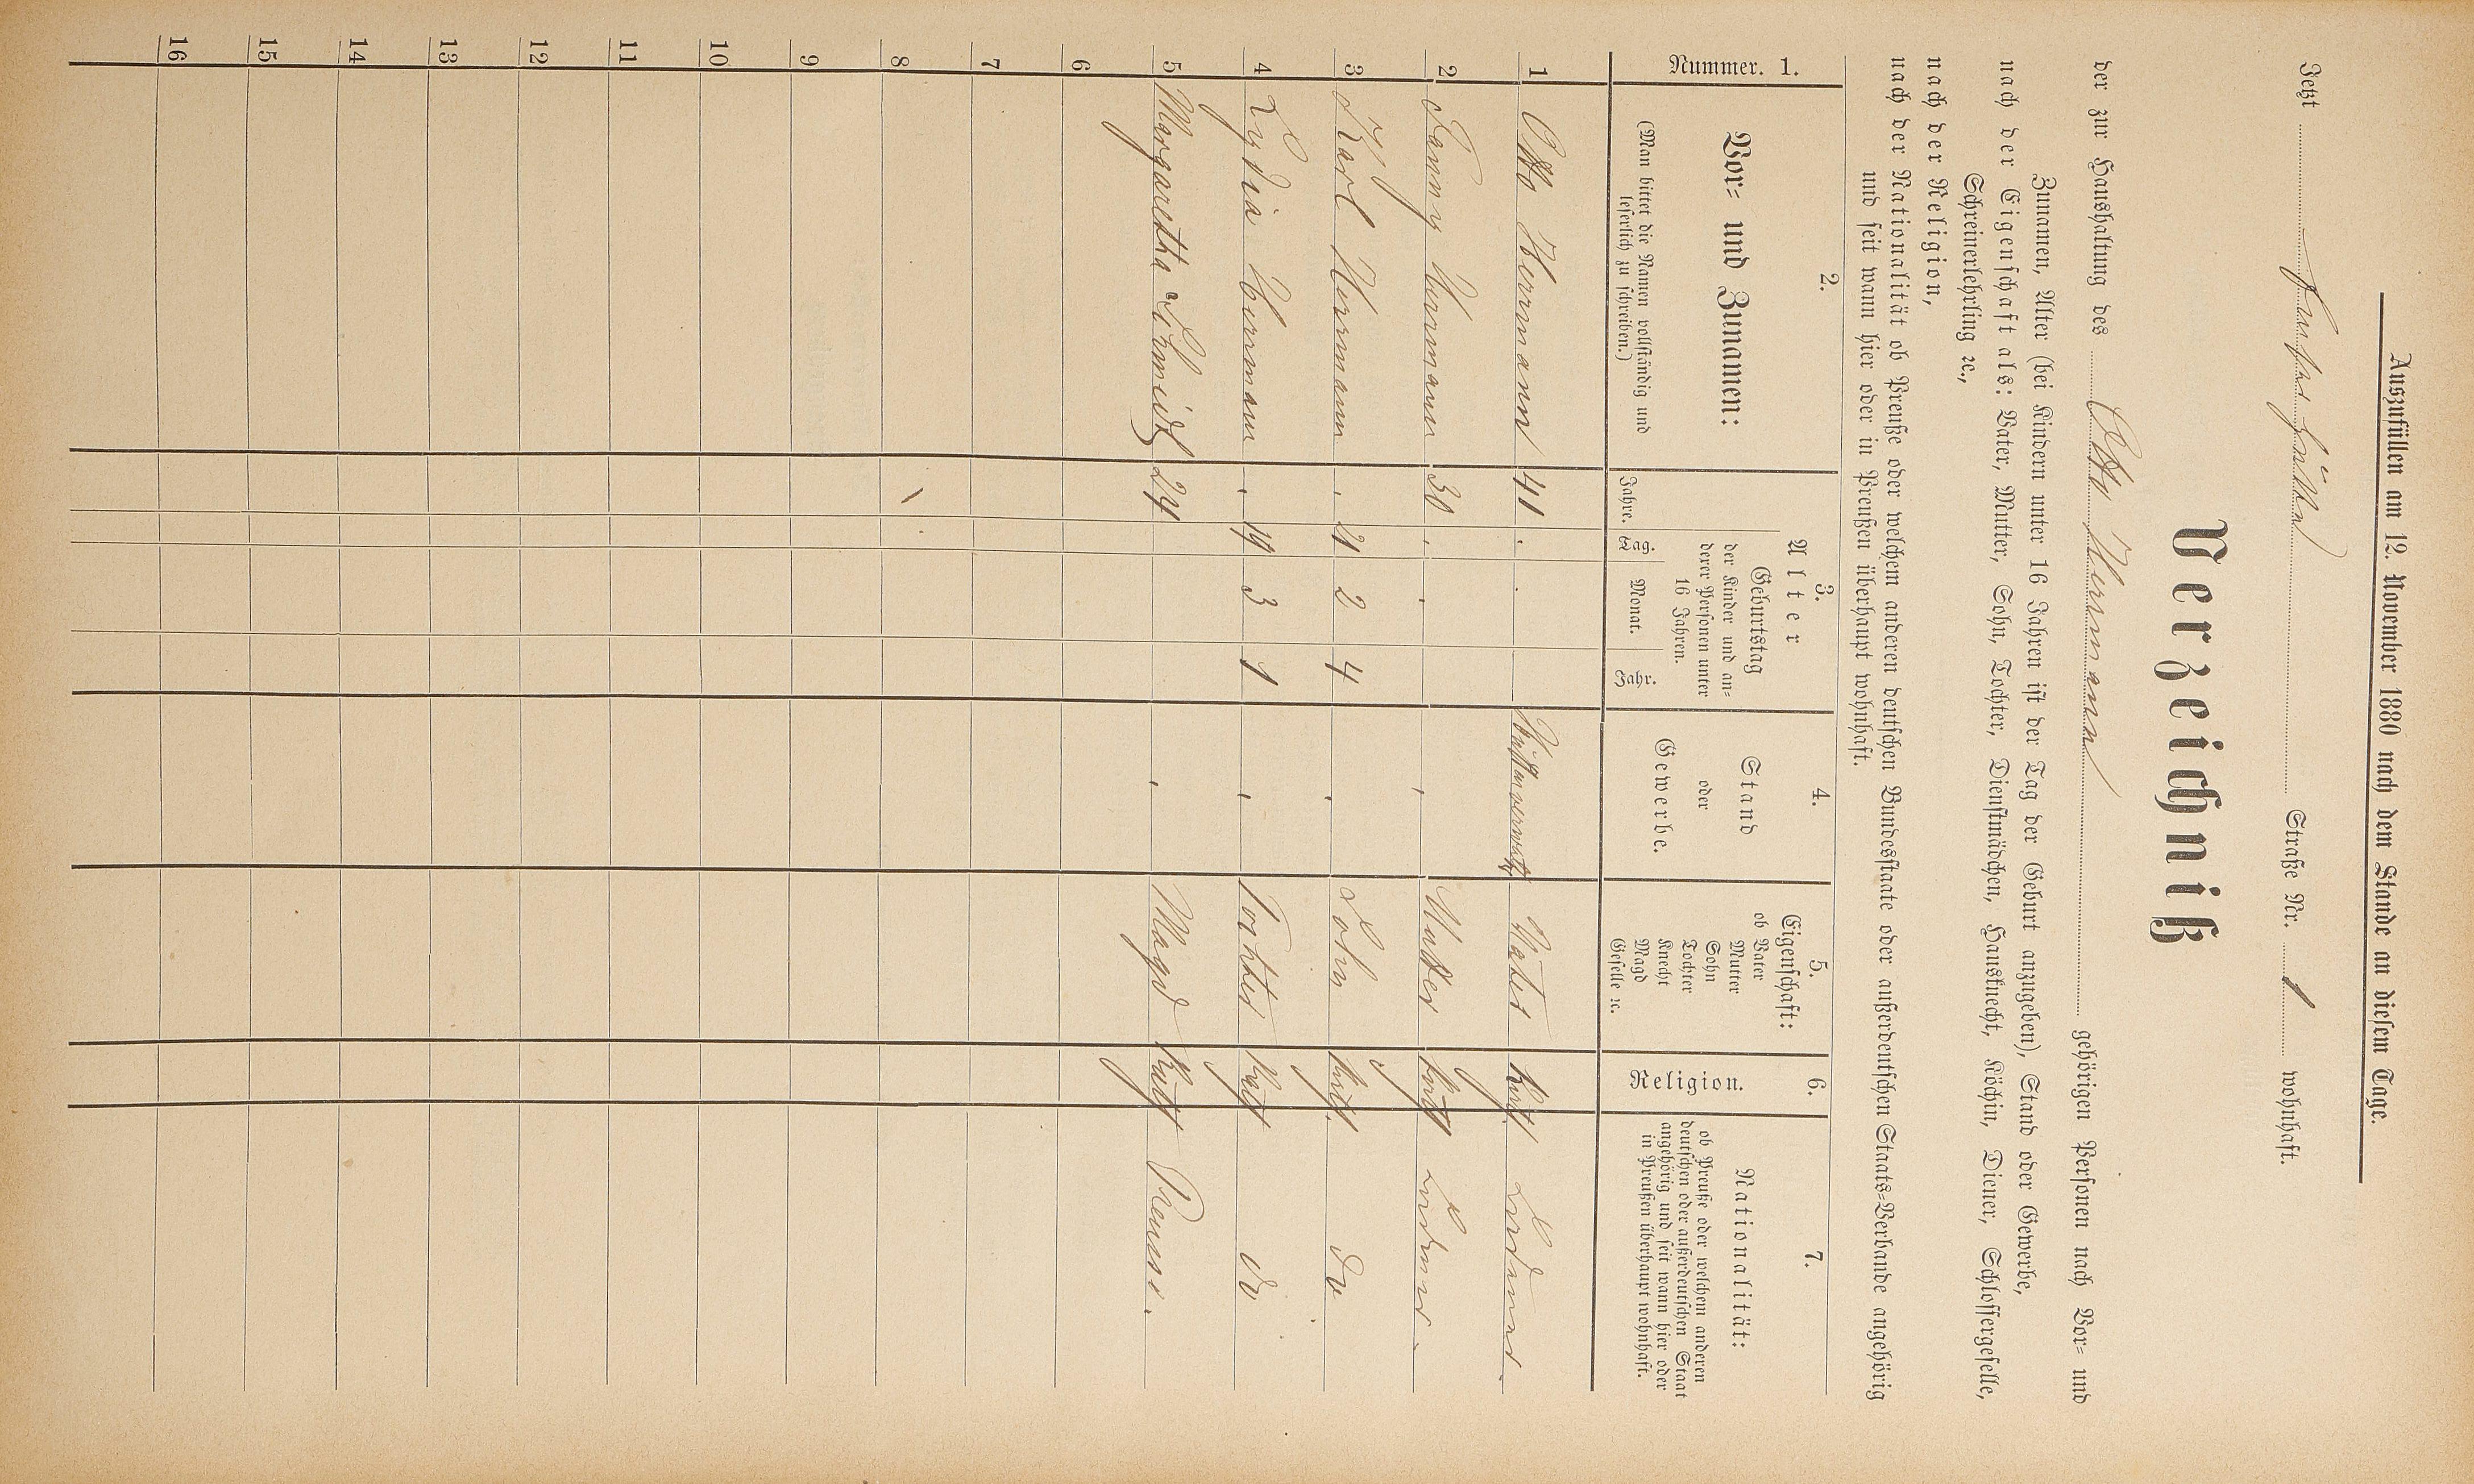 Auszufüllen am 12. November 1880 nach dem Stande an diesem Tage.
Jetzt Straße Nr. 1 wohnhaft.
Verzeichniß
der zur Haushaltung des Otto Hermann gehörigen Personen nach Vor- und
Zunamen, Alter (bei Kindern unter 16 Jahren ist der Tag der Geburt anzugeben), Stand oder Gewerbe,
nach der Eigenschaft als: Vater, Mutter, Sohn, Tochter, Dienstmädchen, Hausknecht, Köchin, Diener, Schlossergeselle,
Schreinerlehrling ꝛc.,
nach der Religion,
nach der Nationalität ob Preuße oder welchem anderen deutschen Bundesstaate oder außerdeutschen Staats-Verbande angehörig
und seit wann hier oder in Preußen überhaupt wohnhaft.
Nummer. 1.
2.
Vor- und Zunamen:
(Man bittet die Namen vollständig und
leserlich zu schreiben.)
3.
Alter
Jahre.
Geburtstag
der Kinder und an-
derer Personen unter
16 Jahren.
Tag. Monat. Jahr.
4.
Stand
oder
Gewerbe.
5.
Eigenschaft:
ob Vater
Mutter
Sohn
Tochter
Knecht
Magd
Geselle ꝛc.
6.
Religion.
7.
Nationalität:
ob Preuße oder welchem anderen
deutschen oder außerdeutschen Staat
angehörig und seit wann hier oder
in Preußen überhaupt wohnhaft.
1 Otto Hermann 41 Vater
2 Fanny Hermann 30 Mutter
3 Karl Hermann 21 2 4 Sohn do
4 Lydia Hermann 19 3 1 Tochter do
5 Margaretha Schmidt 24 Magd Preusse.
6
7
8
9
10
11
12
13
14
15
16